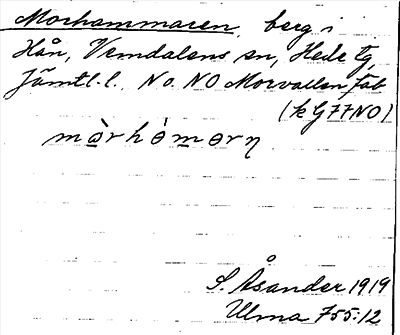 Morhammaren, berg i
Hån, Vemdalens sn, Hede tg,
Jämtl. l. No. NO Morvallen fäb
(k G 77 NO)
mɑ̀rhómɵrn
S. Åsander 1919
Ulma 755:12